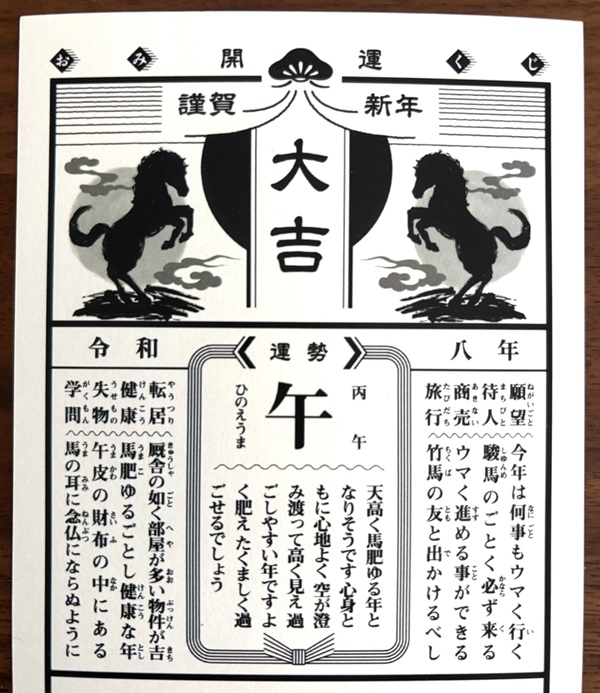 おみ開運くじ
謹賀新年
大吉
令和八年
運勢
丙午
午
ひのえうま
願望 今年は何事もウマく行く
待人 駿馬のごとく必ず来る
商売 ウマく進める事ができる
旅行 竹馬の友と出かけるべし
天高く馬肥ゆる年と
なりそうです心身と
もに心地よく空が澄
み渡って高く見え過
ごしやすい年ですよ
く肥えたくましく過
ごせるでしょう
転居 厩舎の如く部屋が多い物件が吉
健康 馬肥ゆるごとし健康な年
失物 午皮の財布の中にある
学問 馬の耳に念仏にならぬように